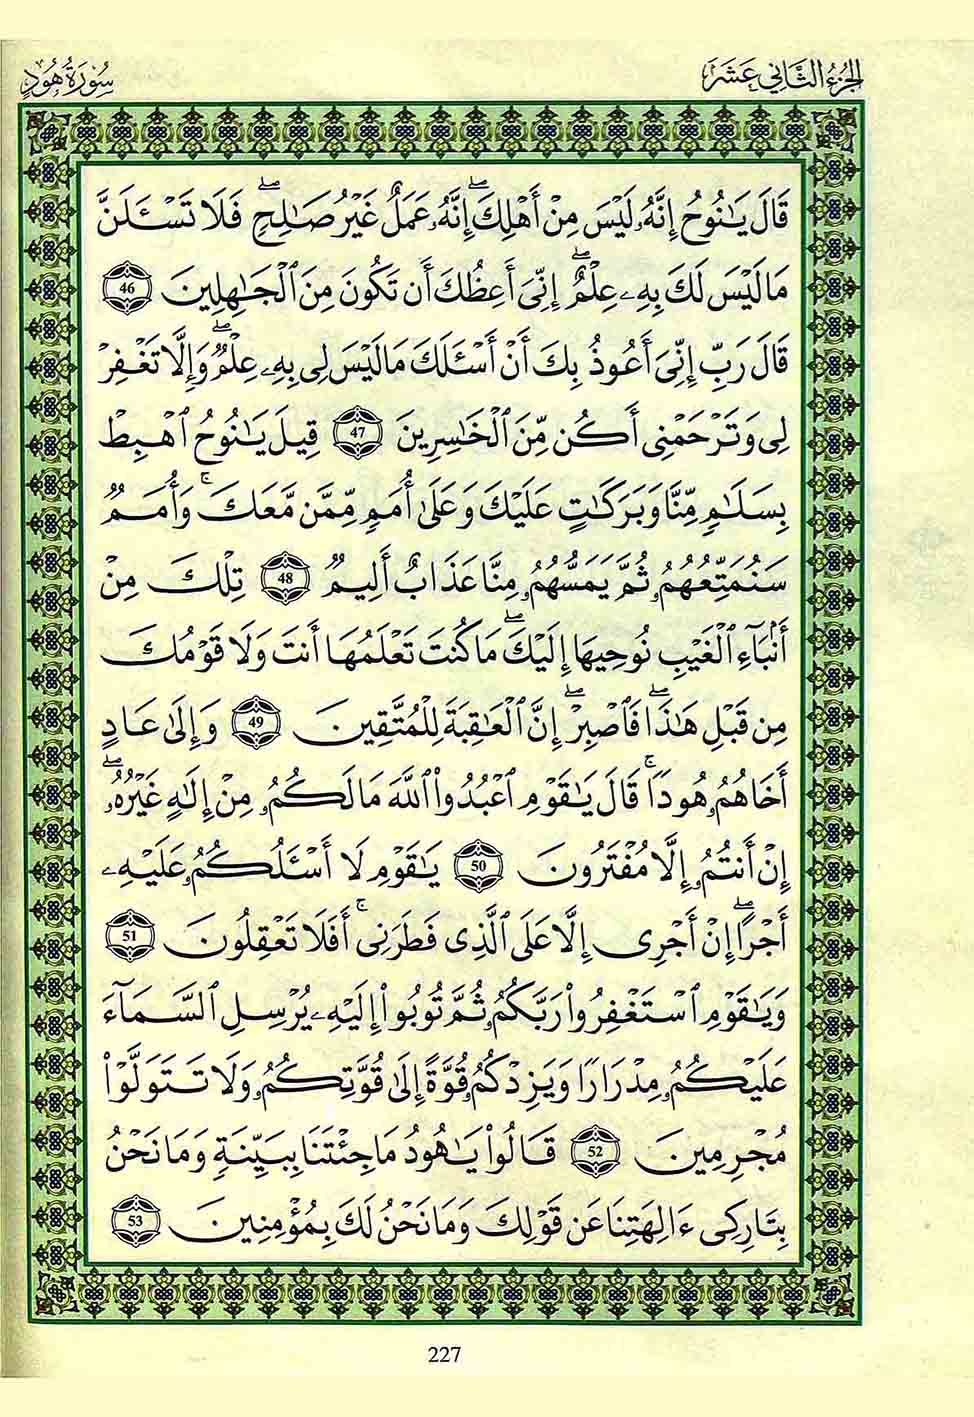 الجزء الثاني عشر
سورة هود
قَالَ يَٰنُوحُ إِنَّهُۥ لَيْسَ مِنْ أَهْلِكَۖ إِنَّهُۥ عَمَلٌ غَيْرُ صَٰلِحٍۖ فَلَا تَسْـَٔلَنَّ
مَا لَيْسَ لَكَ بِهِۦ عِلْمٌۖ إِنِّىَ أَعِظُكَ أَن تَكُونَ مِنَ ٱلْجَٰهِلِينَ 46
قَالَ رَبِّ إِنِّىَ أَعُوذُ بِكَ أَنْ أَسْـَٔلَكَ مَا لَيْسَ لِى بِهِۦ عِلْمٌۖ وَإِلَّا تَغْفِرْ
لِى وَتَرْحَمْنِى أَكُن مِّنَ ٱلْخَٰسِرِينَ 47 قِيلَ يَٰنُوحُ ٱهْبِطْ
بِسَلَٰمٍ مِّنَّا وَبَرَكَٰتٍ عَلَيْكَ وَعَلَىٰ أُمَمٍ مِّمَّن مَّعَكَۚ وَأُمَمٌ
سَنُمَتِّعُهُمُۥ ثُمَّ يَمَسُّهُمُۥ مِنَّا عَذَابٌ أَلِيمٌ 48 تِلْكَ مِنْ
أَنۢبَآءِ ٱلْغَيْبِ نُوحِيهَا إِلَيْكَۖ مَا كُنتَ تَعْلَمُهَا أَنتَ وَلَا قَوْمُكَ
مِن قَبْلِ هَٰذَاۖ فَٱصْبِرْۖ إِنَّ ٱلْعَٰقِبَةَ لِلْمُتَّقِينَ 49 وَإِلَىٰ عَادٍ
أَخَاهُمُۥ هُودًاۚ قَالَ يَٰقَوْمِ ٱعْبُدُوا۟ ٱللَّهَ مَا لَكُمُۥ مِنْ إِلَٰهٍ غَيْرُهُۥۖ
إِنْ أَنتُمُۥ إِلَّا مُفْتَرُونَ 50 يَٰقَوْمِ لَا أَسْـَٔلُكُمُۥ عَلَيْهِۦ
أَجْرًاۖ إِنْ أَجْرِى إِلَّا عَلَى ٱلَّذِى فَطَرَنِىۚ أَفَلَا تَعْقِلُونَ 51
وَيَٰقَوْمِ ٱسْتَغْفِرُوا۟ رَبَّكُمُۥ ثُمَّ تُوبُوا۟ إِلَيْهِۦ يُرْسِلِ ٱلسَّمَآءَ
عَلَيْكُمُۥ مِدْرَارًا وَيَزِدْكُمُۥ قُوَّةً إِلَىٰ قُوَّتِكُمُۥ وَلَا تَتَوَلَّوْا۟
مُجْرِمِينَ 52 قَالُوا۟ يَٰهُودُ مَا جِئْتَنَا بِبَيِّنَةٍ وَمَا نَحْنُ
بِتَارِكِى ءَالِهَتِنَا عَن قَوْلِكَ وَمَا نَحْنُ لَكَ بِمُؤْمِنِينَ 53
227